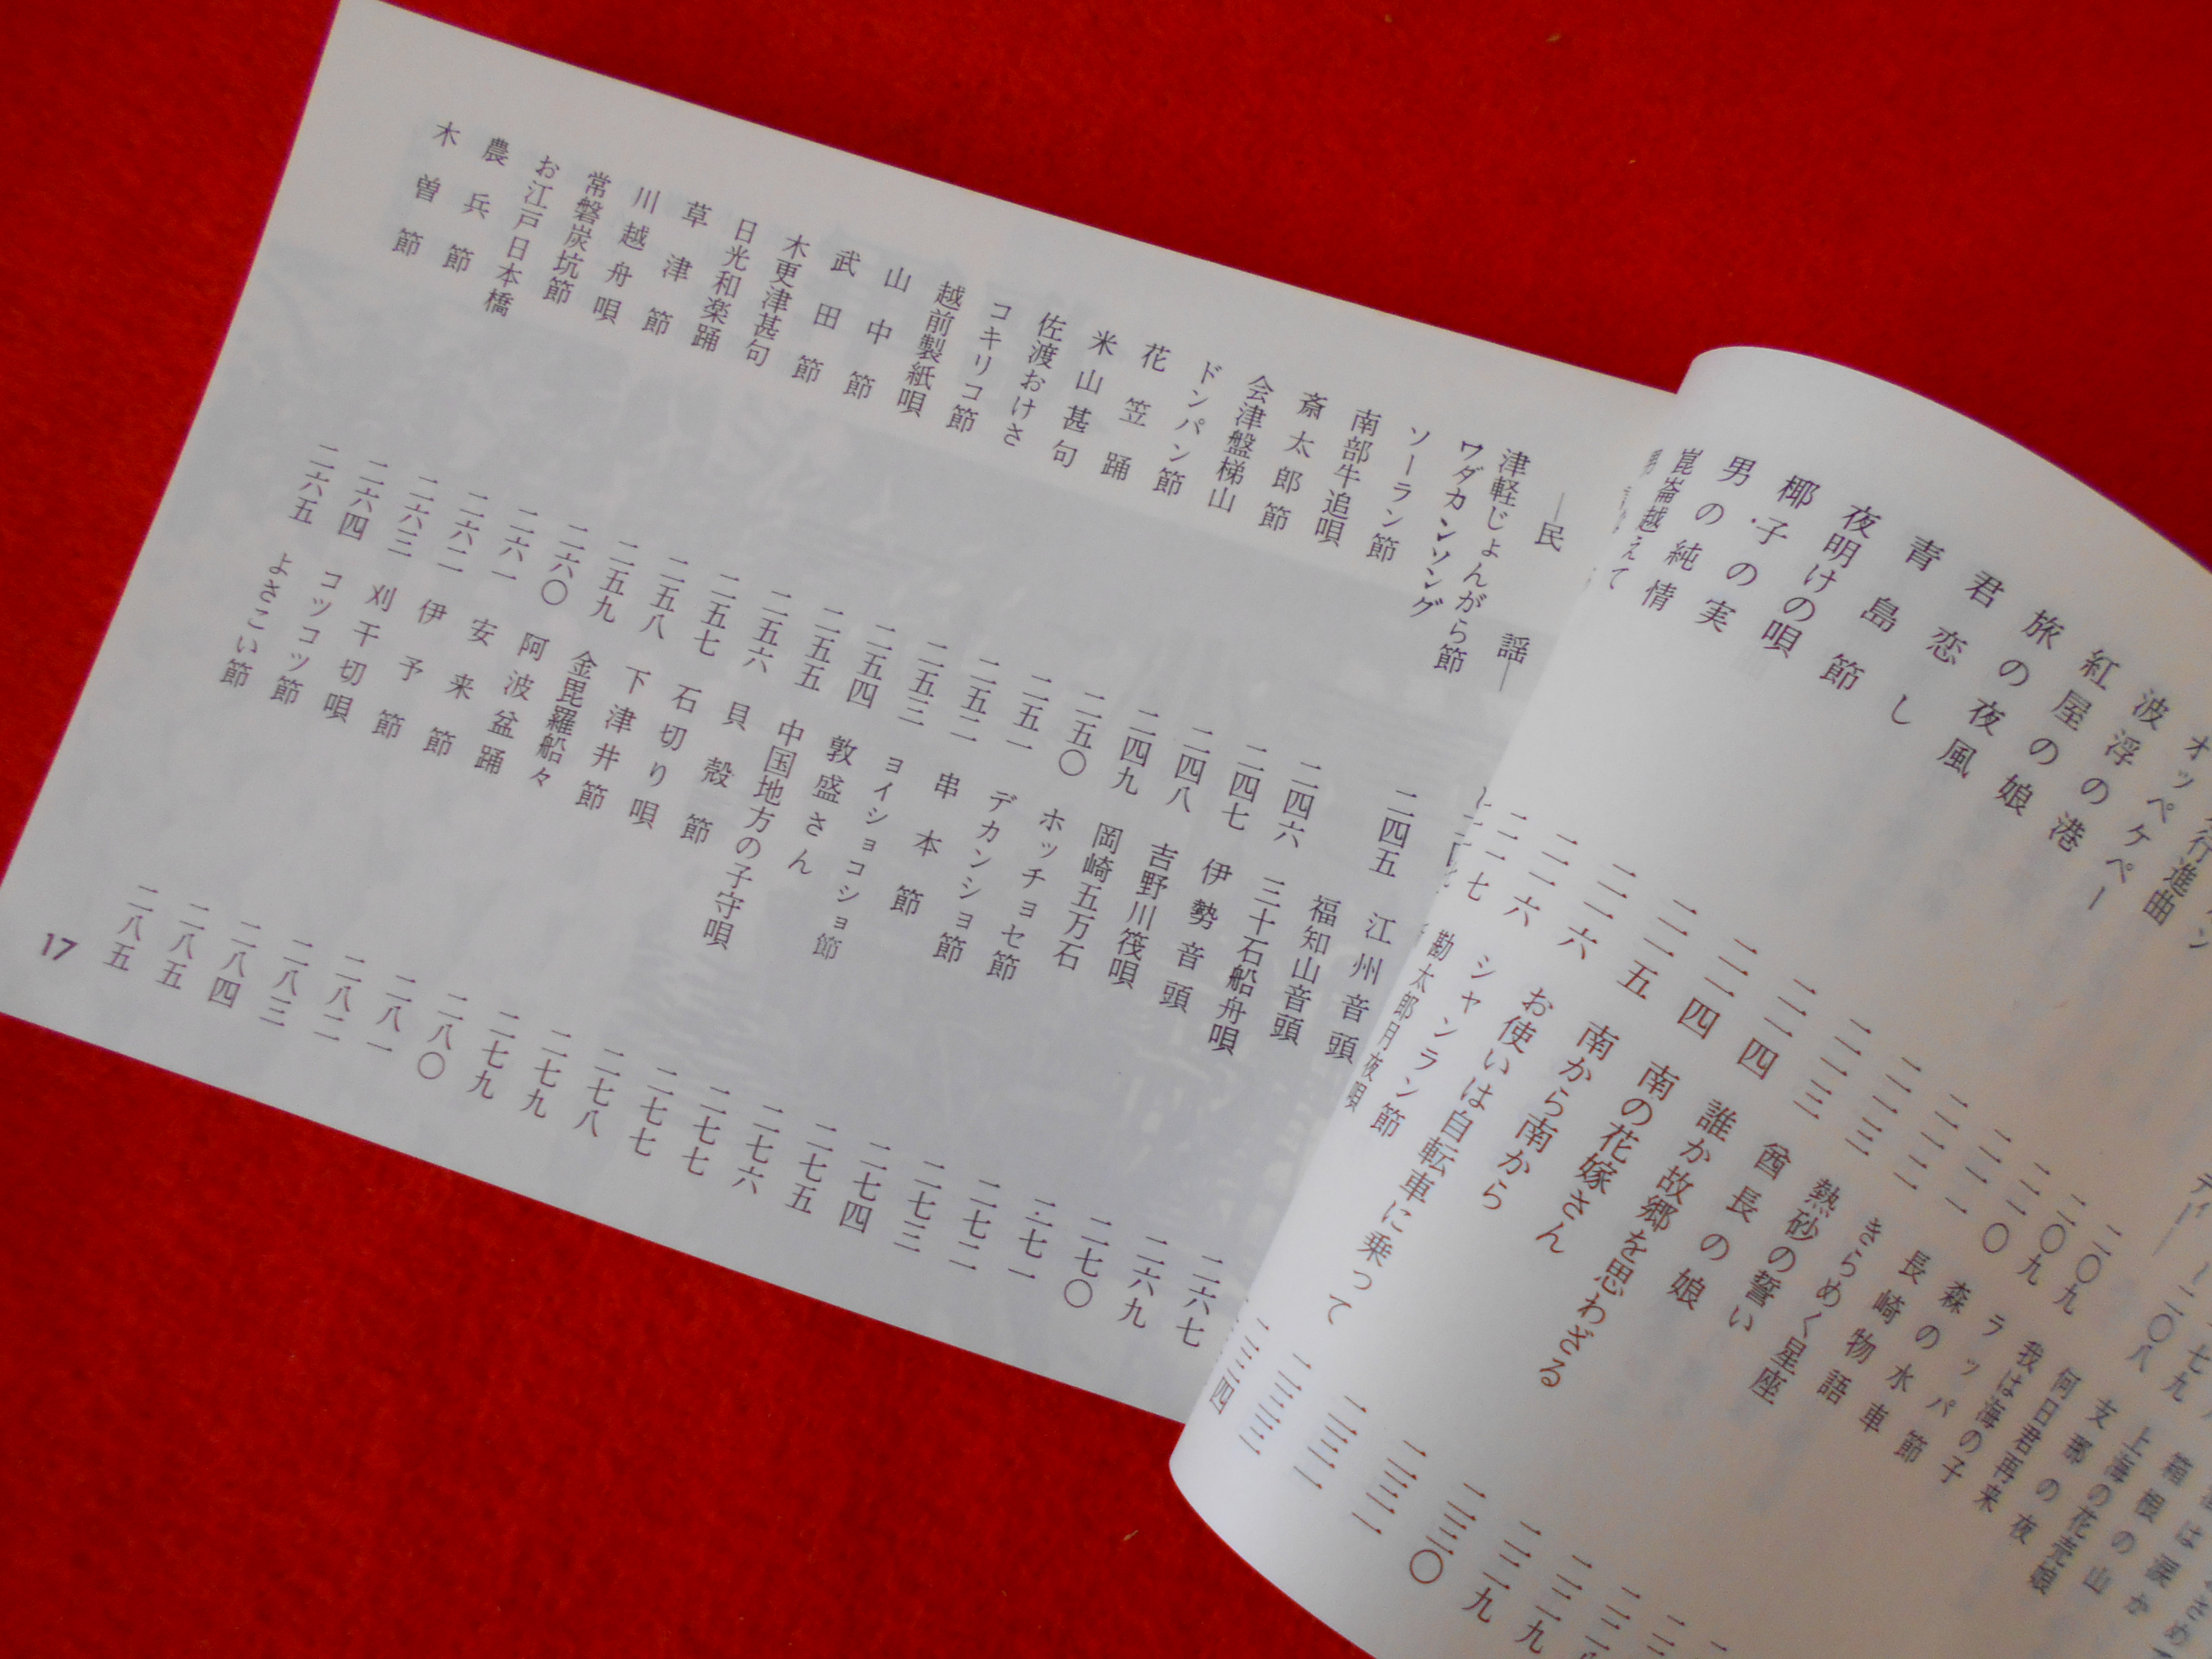 箱根の山
上海の花売娘
支那の夜
二〇九 何日君再来
二〇九 我は海の子
行進曲 二一〇 ラッパ節
オッペケペー 二一一 森の水車
波浮の港 二一二 長崎物語
紅屋の娘 二一三 きらめく星座
旅の夜風 二一三 熱砂の誓い
君恋し 二一四 酋長の娘 二二九
青島節 二一四 誰か故郷を思わざる 二二九
夜明けの唄 二一五 南の花嫁さん 二三〇
椰子の実 二一六 南から南から 二三一
男の純情 二一六 お使いは自転車に乗って 二三二
崑崙越えて 二一七 シャンラン節 二三三
勘太郎月夜唄 二三四
―民謡―
津軽じょんがら節 江州音頭
ワダカンソング 二四五 福知山音頭 二六七
ソーラン節 二四六 三十石船舟唄 二六九
南部牛追唄 二四七 伊勢音頭 二七〇
斎太郎節 二四八 吉野川筏唄 二七一
会津盤梯山 二四九 岡崎五万石 二七二
ドンパン節 二五〇 ホッチョセ節 二七三
花笠踊 二五一 デカンショ節 二七四
米山甚句 二五二 串本節 二七五
佐渡おけさ 二五三 ヨイショコショ節 二七六
コキリコ節 二五四 敦盛さん 二七七
越前製紙唄 二五五 中国地方の子守唄 二七七
山中節 二五六 貝殻節 二七八
武田節 二五七 石切り唄 二七九
木更津甚句 二五八 下津井節 二七九
日光和楽踊 二五九 金毘羅船々 二八〇
草津節 二六〇 阿波盆踊 二八一
川越舟唄 二六一 安来節 二八二
常磐炭坑節 二六二 伊予節 二八三
お江戸日本橋 二六三 刈干切唄 二八四
農兵節 二六四 コツコツ節 二八五
木曽節 二六五 よさこい節 二八五
17